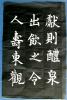 献則醴泉
出飲之令
人壽東觀